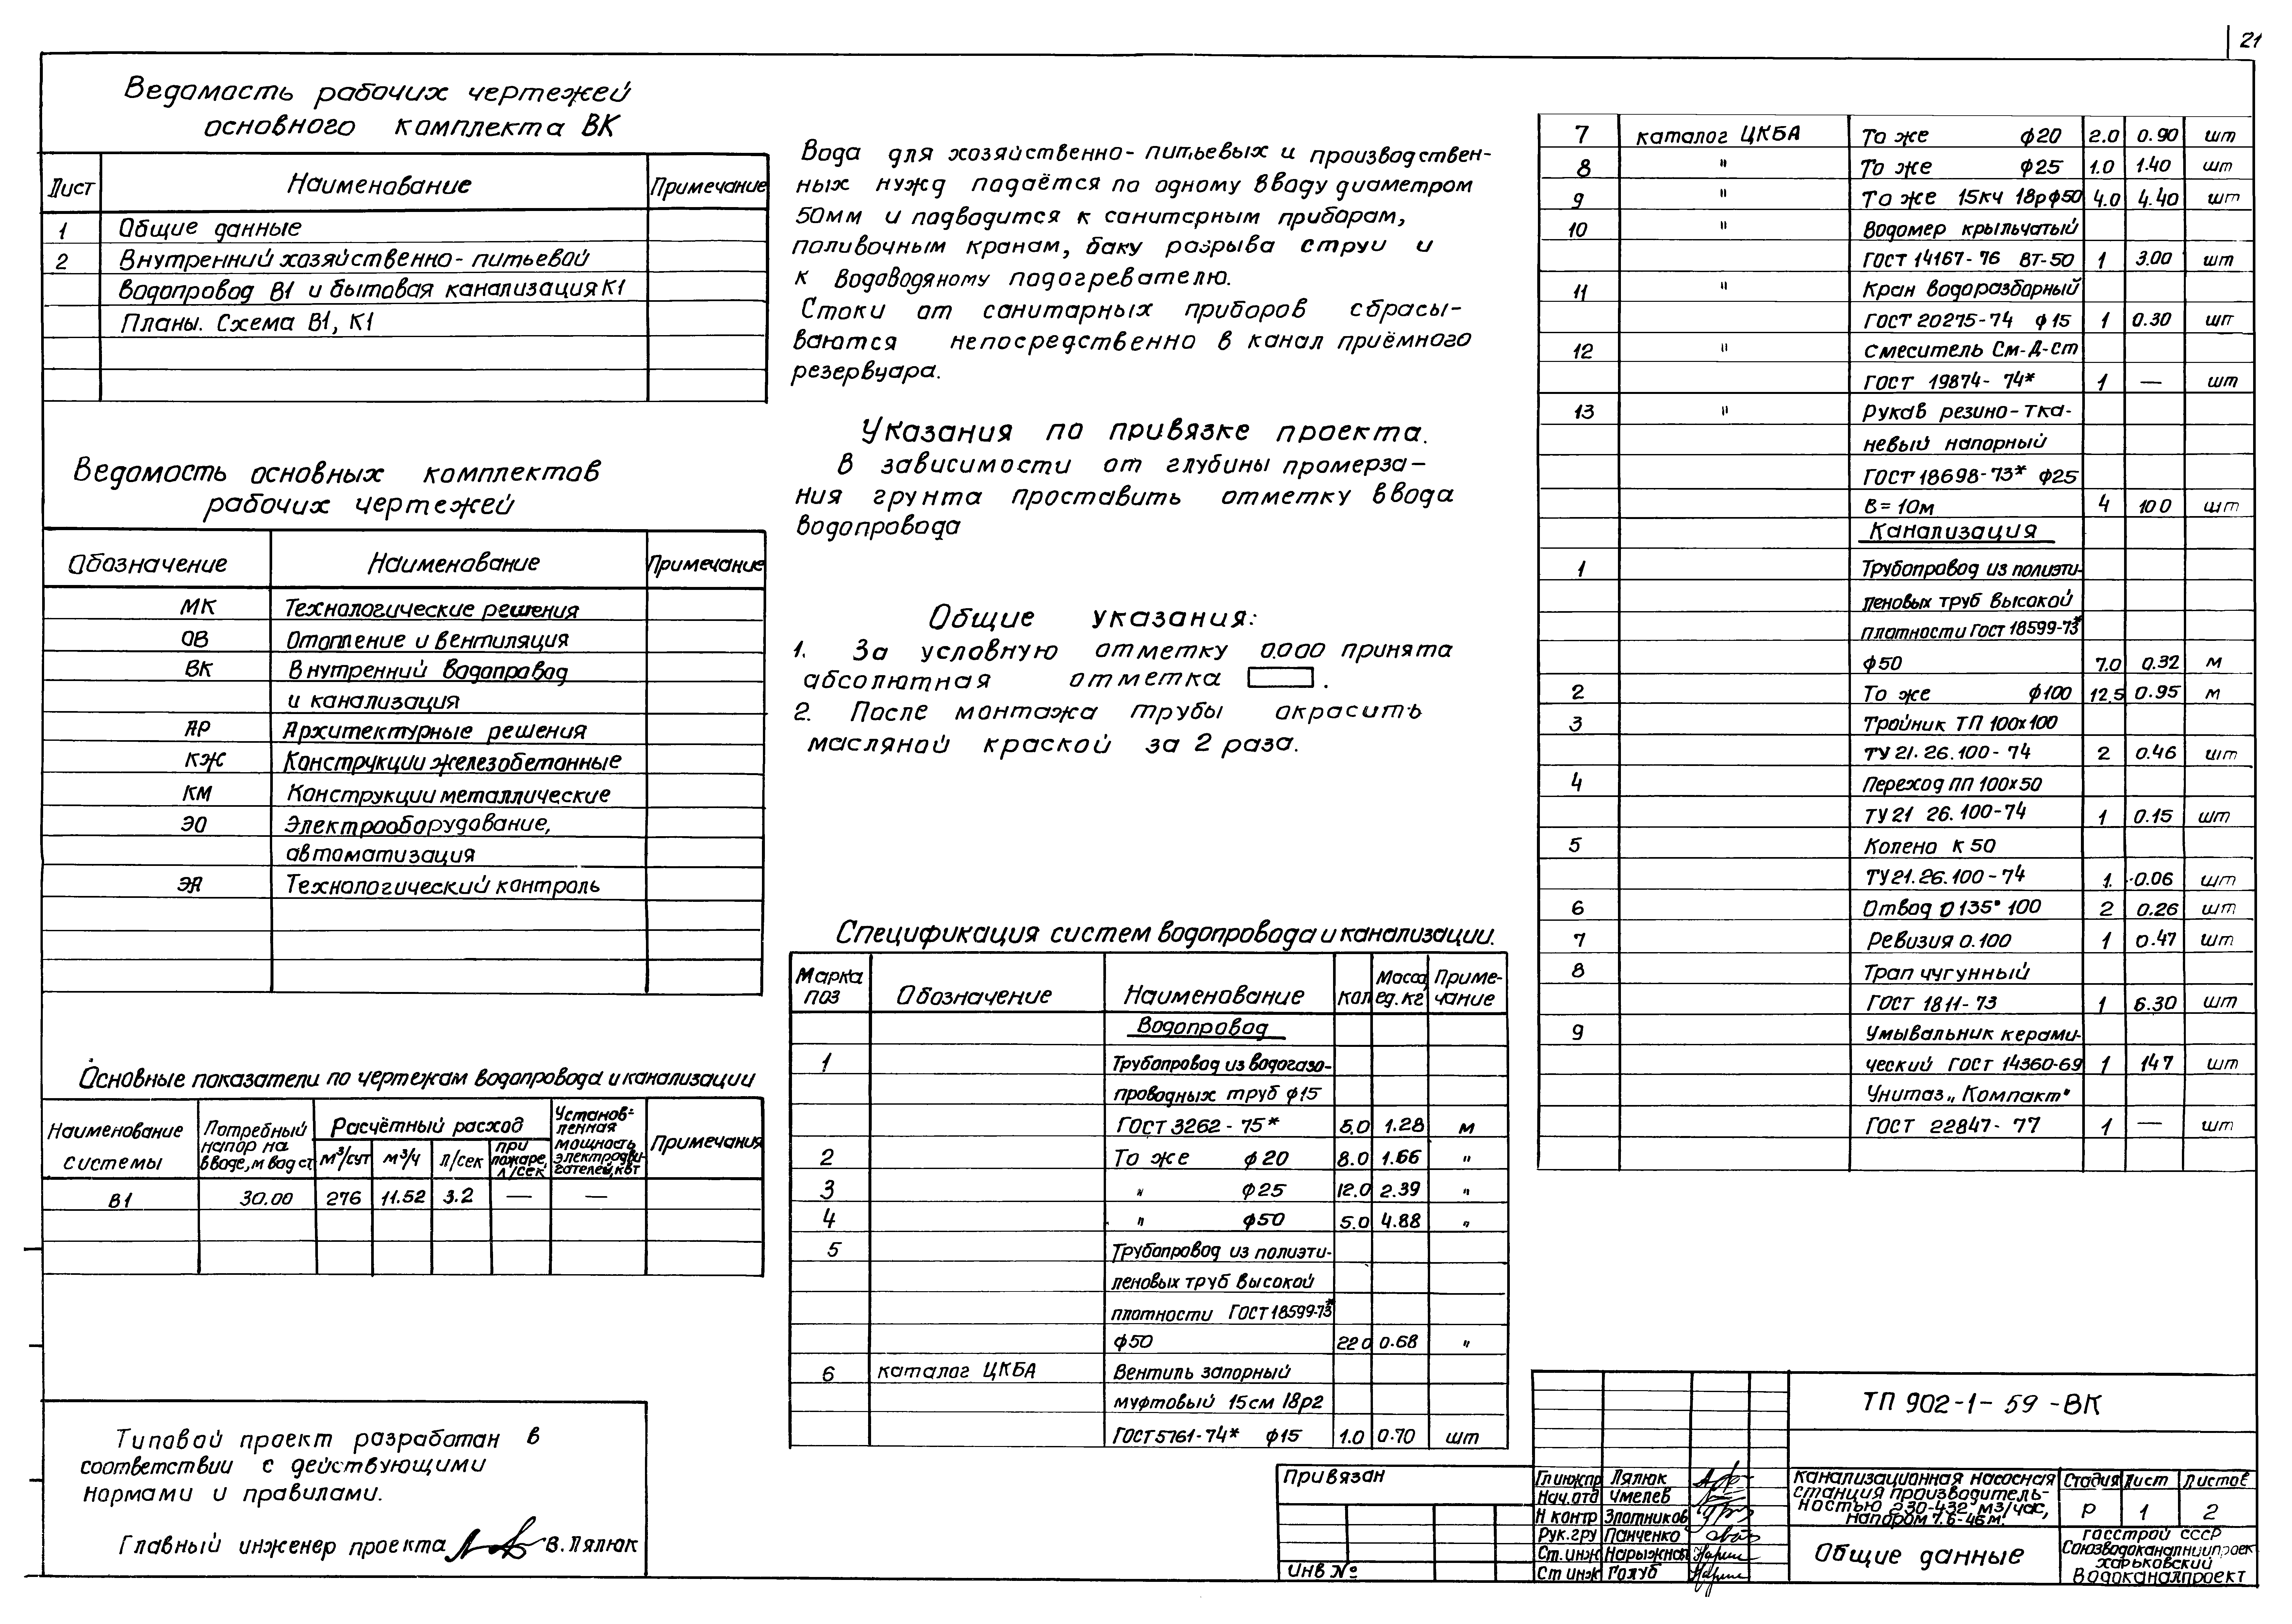 21
Ведомость рабочих чертежей
основного комплекта ВК
Лист Наименование Примечание
1 Общие данные
2 Внутренний хозяйственно-питьевой
водопровод В1 и бытовая канализация К1
Планы. Схема В1, К1
Ведомость основных комплектов
рабочих чертежей
Обозначение Наименование Примечание
МК Технологические решения
ОВ Отопление и вентиляция
ВК Внутренний водопровод
и канализация
АР Архитектурные решения
КЖ Конструкции железобетонные
КМ Конструкции металлические
ЭО Электрооборудование,
автоматизация
ЭА Технологический контроль
Основные показатели по чертежам водопровода и канализации
Наименование системы
Потребный напор на вводе, м вод ст
Расчётный расход
м³/сут м³/ч л/сек при пожаре, л/сек
Установленная мощность электродвигателей, квт
Примечания
В1 30.00 276 11.52 3.2 — —
Типовой проект разработан в
соответствии с действующими
нормами и правилами.
Главный инженер проекта В. Лялюк
Вода для хозяйственно-питьевых и производствен-
ных нужд подаётся по одному вводу диаметром
50мм и подводится к санитарным приборам,
поливочным кранам, баку разрыва струи и
к водоводяному подогревателю.
Стоки от санитарных приборов сбрасы-
ваются непосредственно в канал приёмного
резервуара.
Указания по привязке проекта.
В зависимости от глубины промерза-
ния грунта проставить отметку ввода
водопровода
Общие указания:
1. За условную отметку 0.000 принята
абсолютная отметка .
2. После монтажа трубы окрасить
масляной краской за 2 раза.
Спецификация систем водопровода и канализации.
Марка поз Обозначение Наименование кол Масса, ед. кг Примечание
Водопровод
1 Трубопровод из водогазо-
проводных труб ф15
ГОСТ 3262-75* 5.0 1.28 м
2 То же ф20 8.0 1.66 "
3 " ф25 12.0 2.39 "
4 " ф50 5.0 4.88 "
5 Трубопровод из полиэти-
леновых труб высокой
плотности ГОСТ 18599-73*
ф50 22.0 0.68 "
6 каталог ЦКБА Вентиль запорный
муфтовый 15см 18р2
ГОСТ 5761-74* ф15 1.0 0.70 шт
7 каталог ЦКБА То же ф20 2.0 0.90 шт
8 " То же ф25 1.0 1.40 шт
9 " То же 15кч 18р ф50 4.0 4.40 шт
10 " Водомер крыльчатый
ГОСТ 14167-76 ВТ-50 1 3.00 шт
11 " Кран водоразборный
ГОСТ 20275-74 ф15 1 0.30 шт
12 " Смеситель См-Д-ст
ГОСТ 19874-74* 1 — шт
13 " Рукав резино-тка-
невый напорный
ГОСТ 18698-73* ф25
В=10м 4 10.0 шт
Канализация
1 Трубопровод из полиэти-
леновых труб высокой
плотности ГОСТ 18599-73*
ф50 7.0 0.32 м
2 То же ф100 12.5 0.95 м
3 Тройник ТП 100х100
ТУ 21.26.100-74 2 0.46 шт
4 Переход ПП 100х50
ТУ 21 26.100-74 1 0.15 шт
5 Колено К 50
ТУ 21.26.100-74 1. 0.06 шт
6 Отвод О 135° 100 2 0.26 шт
7 Ревизия О.100 1 0.47 шт
8 Трап чугунный
ГОСТ 1811-73 1 6.30 шт
9 Умывальник керами-
ческий ГОСТ 14360-69 1 14.7 шт
Унитаз „Компакт"
ГОСТ 22847-77 1 — шт
Привязан
Инв №
Гл инж пр Лялюк
Нач.отд Чмелев
Н контр Злотников
Рук.гру Панченко
Ст. инж Нарыжная
Ст инж Голуб
ТП 902-1-59-ВК
Канализационная насосная
станция производитель-
ностью 230-432 м3/час,
напором 7.6-46 м.
Стадия Лист Листов
Р 1 2
Общие данные
Госстрой СССР
Союзводоканалниипроек
Харьковский
Водоканалпроект